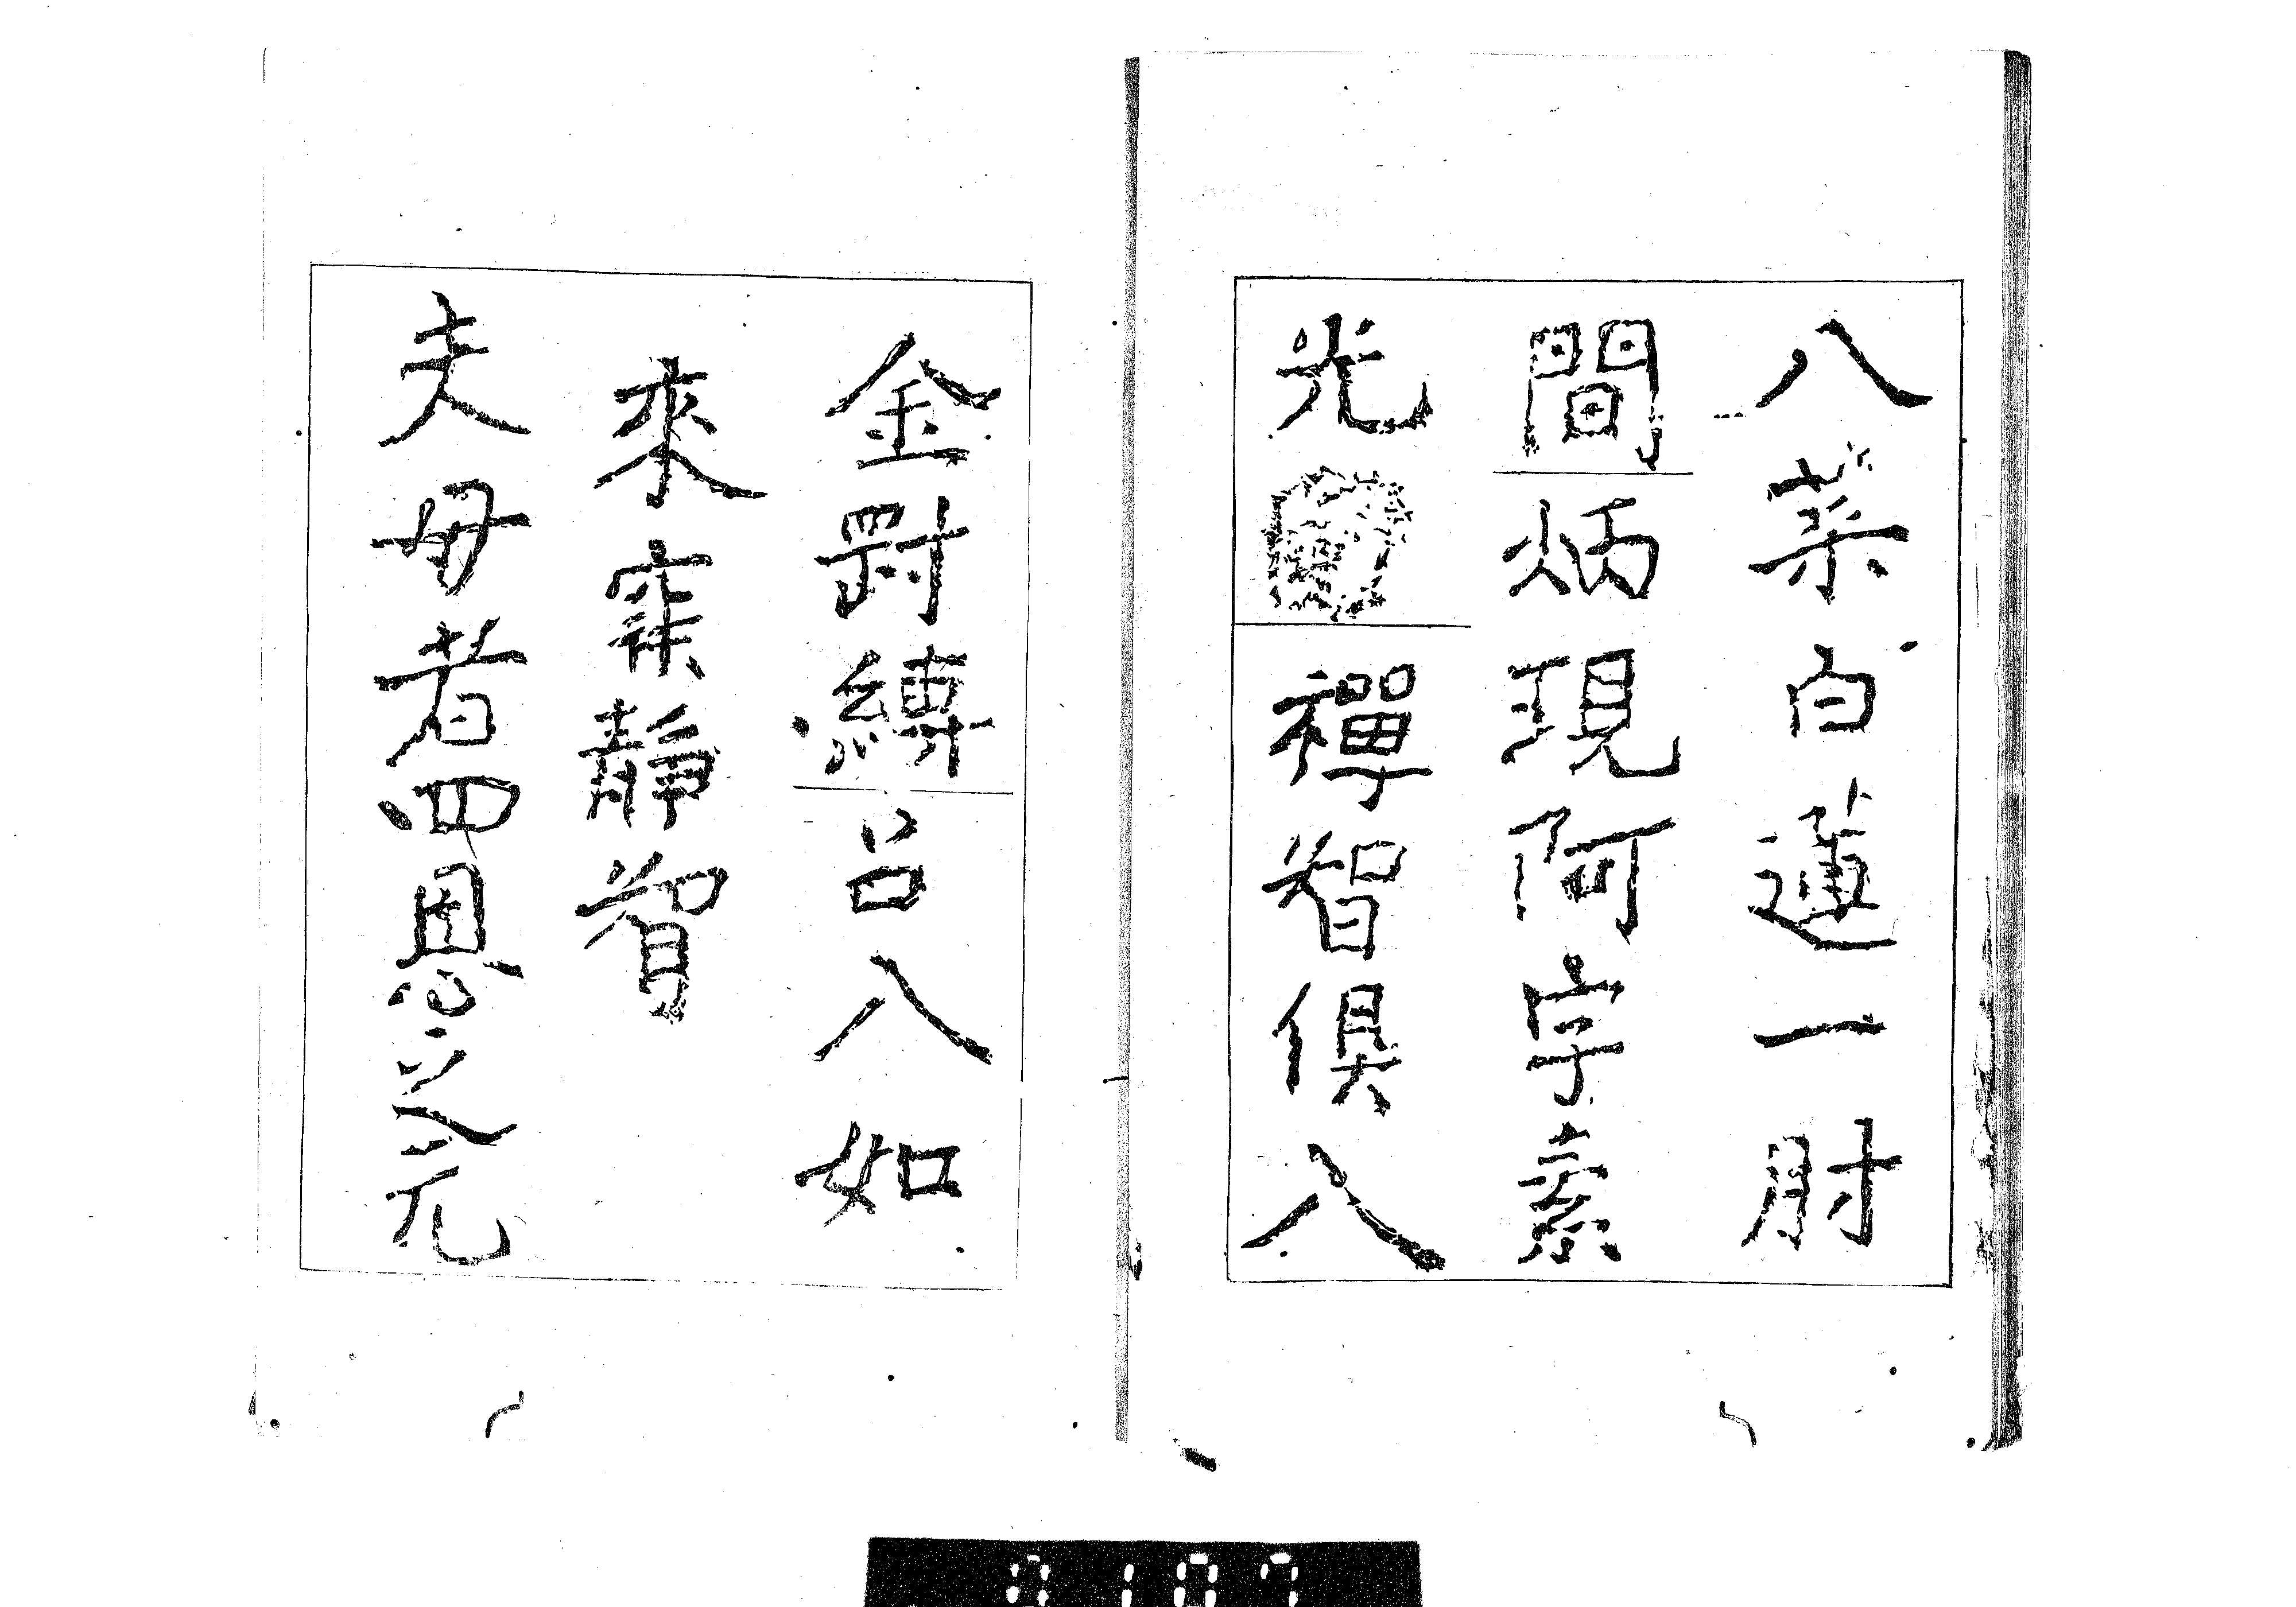 八葉白蓮一肘
間炳現阿字素
光色禪智俱入
金剛縛召入如
來寂靜智
夫毋者四恩之元
3107